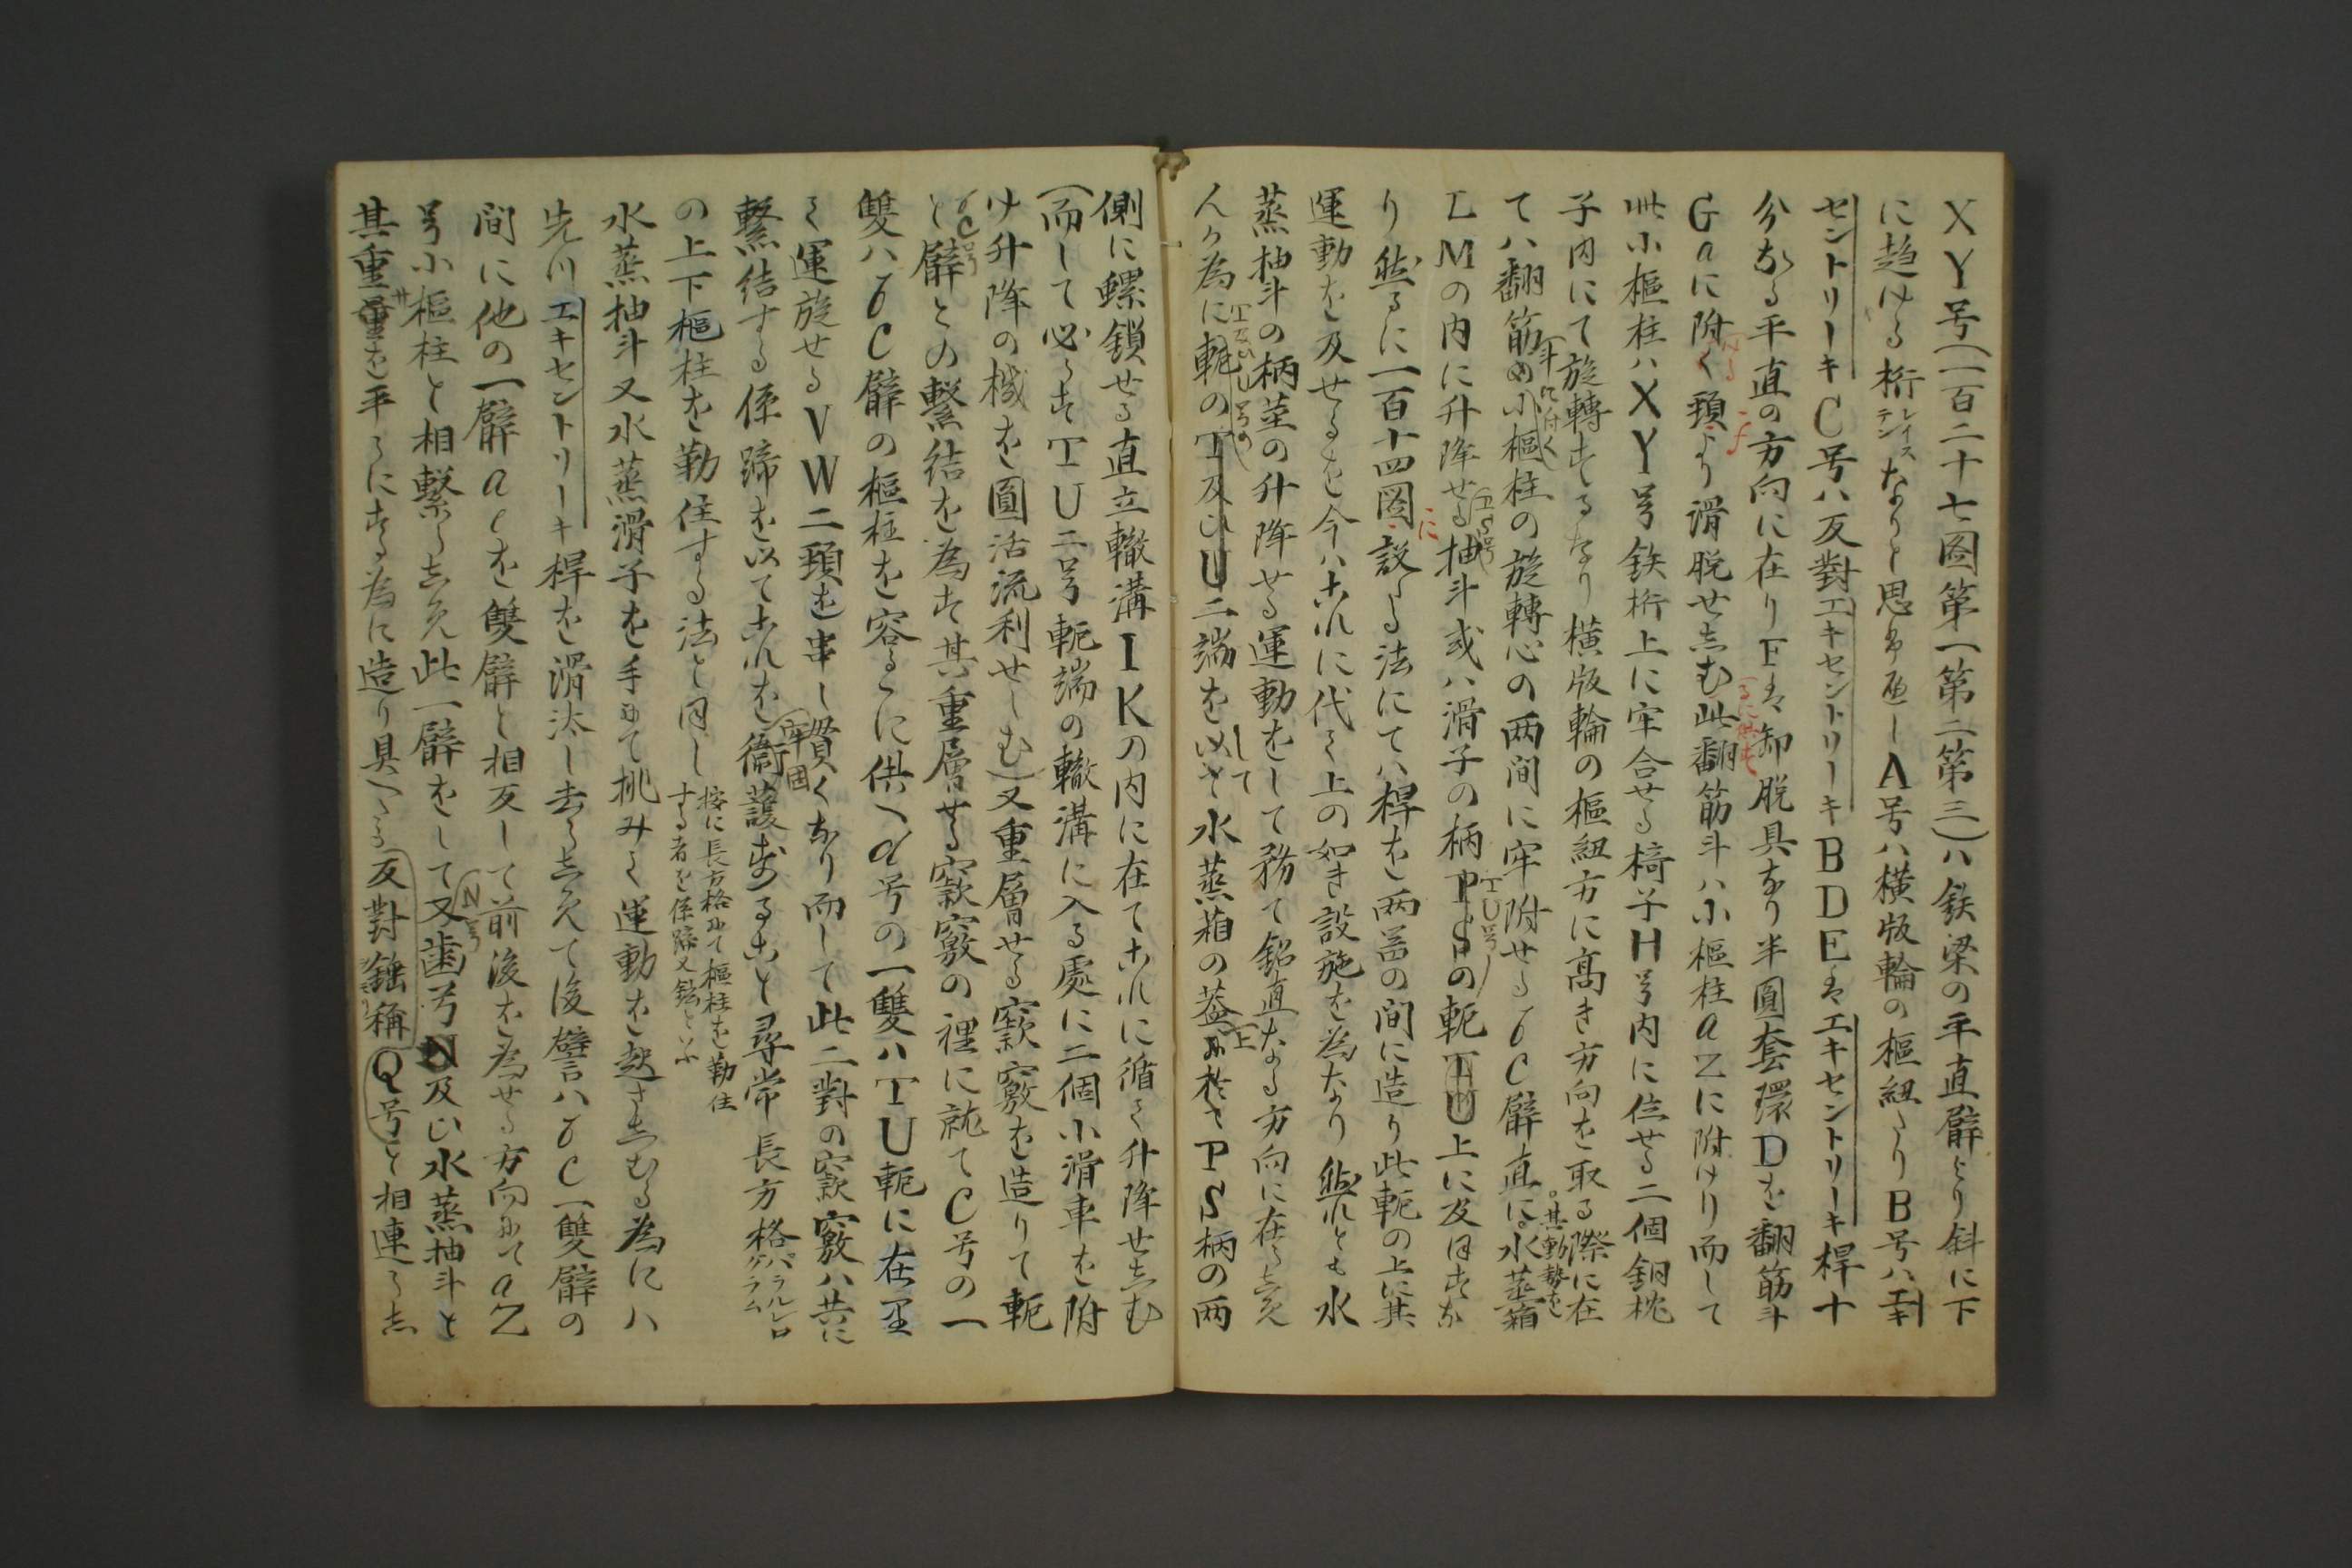 XY号(一百二十七図第一第二第三)ハ鉄梁の平直臂より斜に下
に趨ける桁レイステンなりと思ふ可しA号ハ横版輪の枢紐なりB号ハエキ
セントリーキC号ハ反對エキセントリーキBDEはエキセントリーキ桿十
分なる平直の方向に在りFは卸脱具なり半圓套環Dを翻筋斗
Gaに附く頚より滑脱せしむ此翻筋斗ハ小樞柱aZに附けり而して
此小樞柱ハXY号鉄桁上に牢合せる椅子H号内に位せる二個銅枕
子内にて旋轉するなり横版輪の樞紐方に髙き方向を取る際に在
てハ翻筋の小樞柱の旋轉心の両间に牢附せるbC臂直に其動勢を水蒸箱
LMの内に升降せる抽斗或ハ滑子の柄PSの軛TU上に及ほすな
り然るに一百十四図に説ける法にてハ桿を両器の间に造り此軛の上に其
運動を及せるを今ハこれに代て上の如き設施を為なり然れとも水
蒸抽斗の柄茎の升降せる運動をして務て鉛直なる方向に在らしめ
んか為に軛のT及ひU二端を以て水蒸箱の葢上に於てPS柄の両
側に螺鎖せる直立轍溝IKの内に在てこれに循て升降せしむ
(而して必らすTU二号軛端の轍溝に入る處に二個小滑車を附
け升降の機を圓活流利せしむ)又重層せる窾竅を造りて軛
と臂との繋结を為す其重層せる窾竅の裡に就てC号の一
雙ハbC臂の樞柱を容るゝに供へd号の一雙ハTU軛に在里
て運旋せるVW二頚を串し貫くなり而して此二對の窾竅ハ共に
繋结する係蹄を以てこれを衞護すること尋常長方格パラルレロガラム
の上下樞柱を勒住する法と同し按に長方格にて樞柱を勒住
する者を係蹄又鉉と云ふ
水蒸抽斗又水蒸滑子を手にて挑みて運動を起さしむる為にハ
先ツエキセントリーキ桿を滑汰し去らしめて後譬ハbC一雙臂の
间に他の一臂aeを雙臂と相反して前後を為せる方向にてaZ
号小樞柱と相繋らしめ此一臂をして又歯号N及ひ水蒸抽斗と
其重量を平らにする為に造り具へたる反對錘稱Q号と相連らし